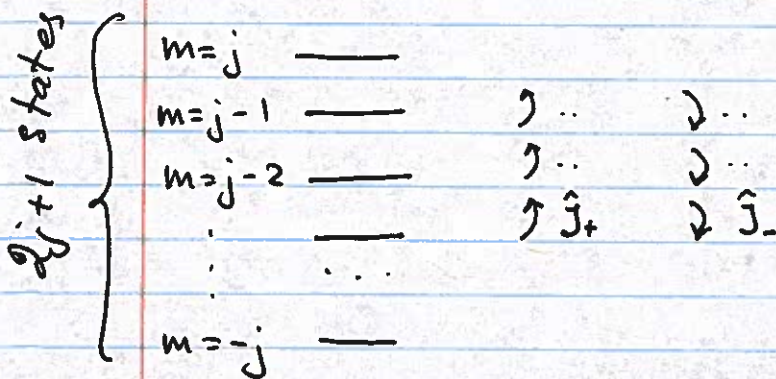 2j+1 states
m=j
m=j-1 .. ..
m=j-2 .. ..
: Ĵ+ Ĵ-
: ...
m=-j